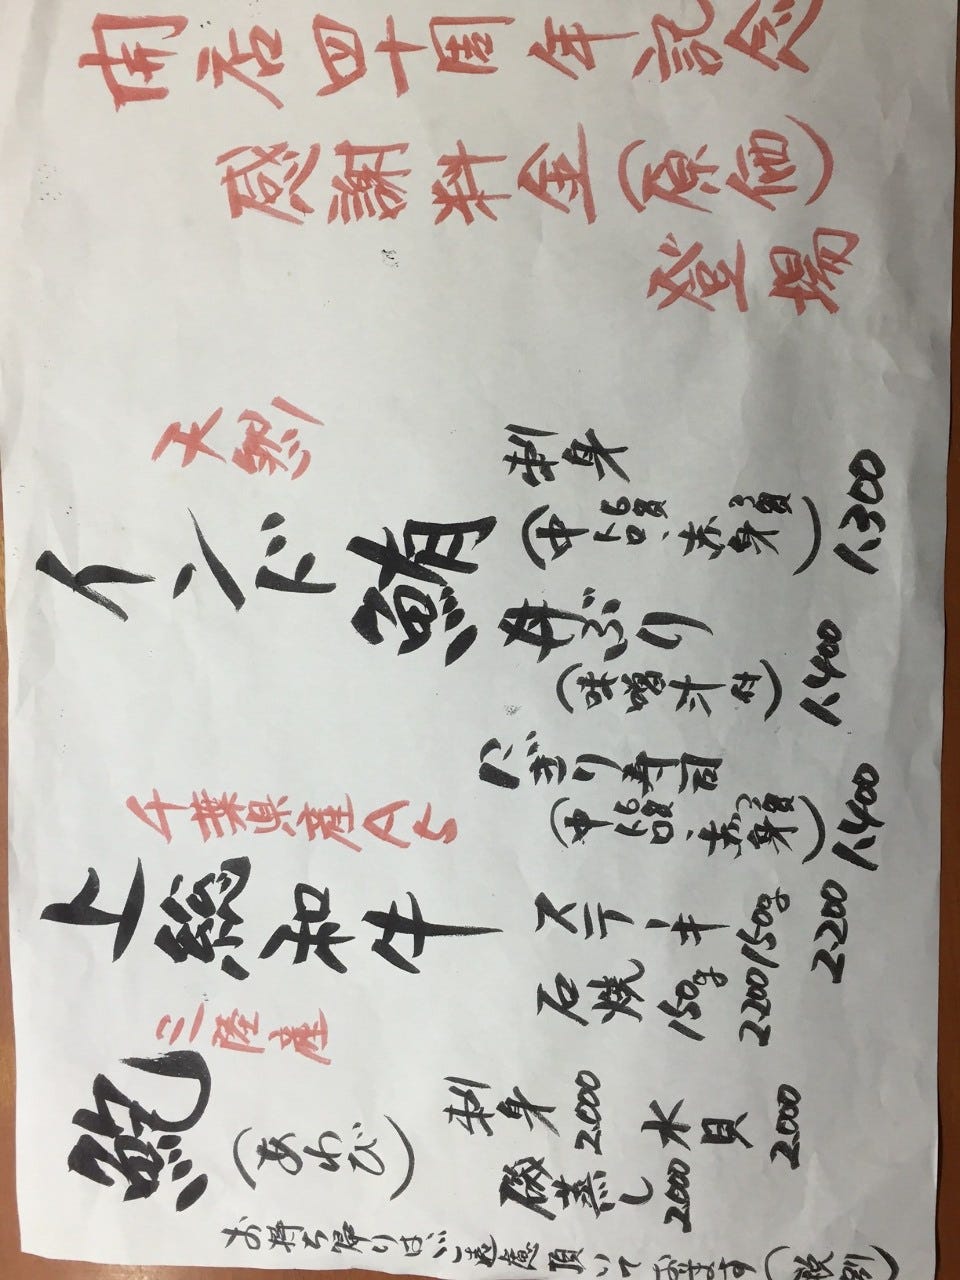 開店四十周年記念
感謝料金(原価)
登場
天然
インド鮪
刺身
(中トロ 、赤身 )
1.300
丼ぶり
(味噌汁付)
1.400
にぎり寿司
(中トロ 、赤身 )
1.400
千葉県産A5
上総和牛
ステーキ
150g
2.200
石焼
150g
2.200
三陸産
鮑
(あわび)
刺身
2.000
水貝
2.000
磯蒸し
2.000
お持ち帰りはご遠慮頂いております